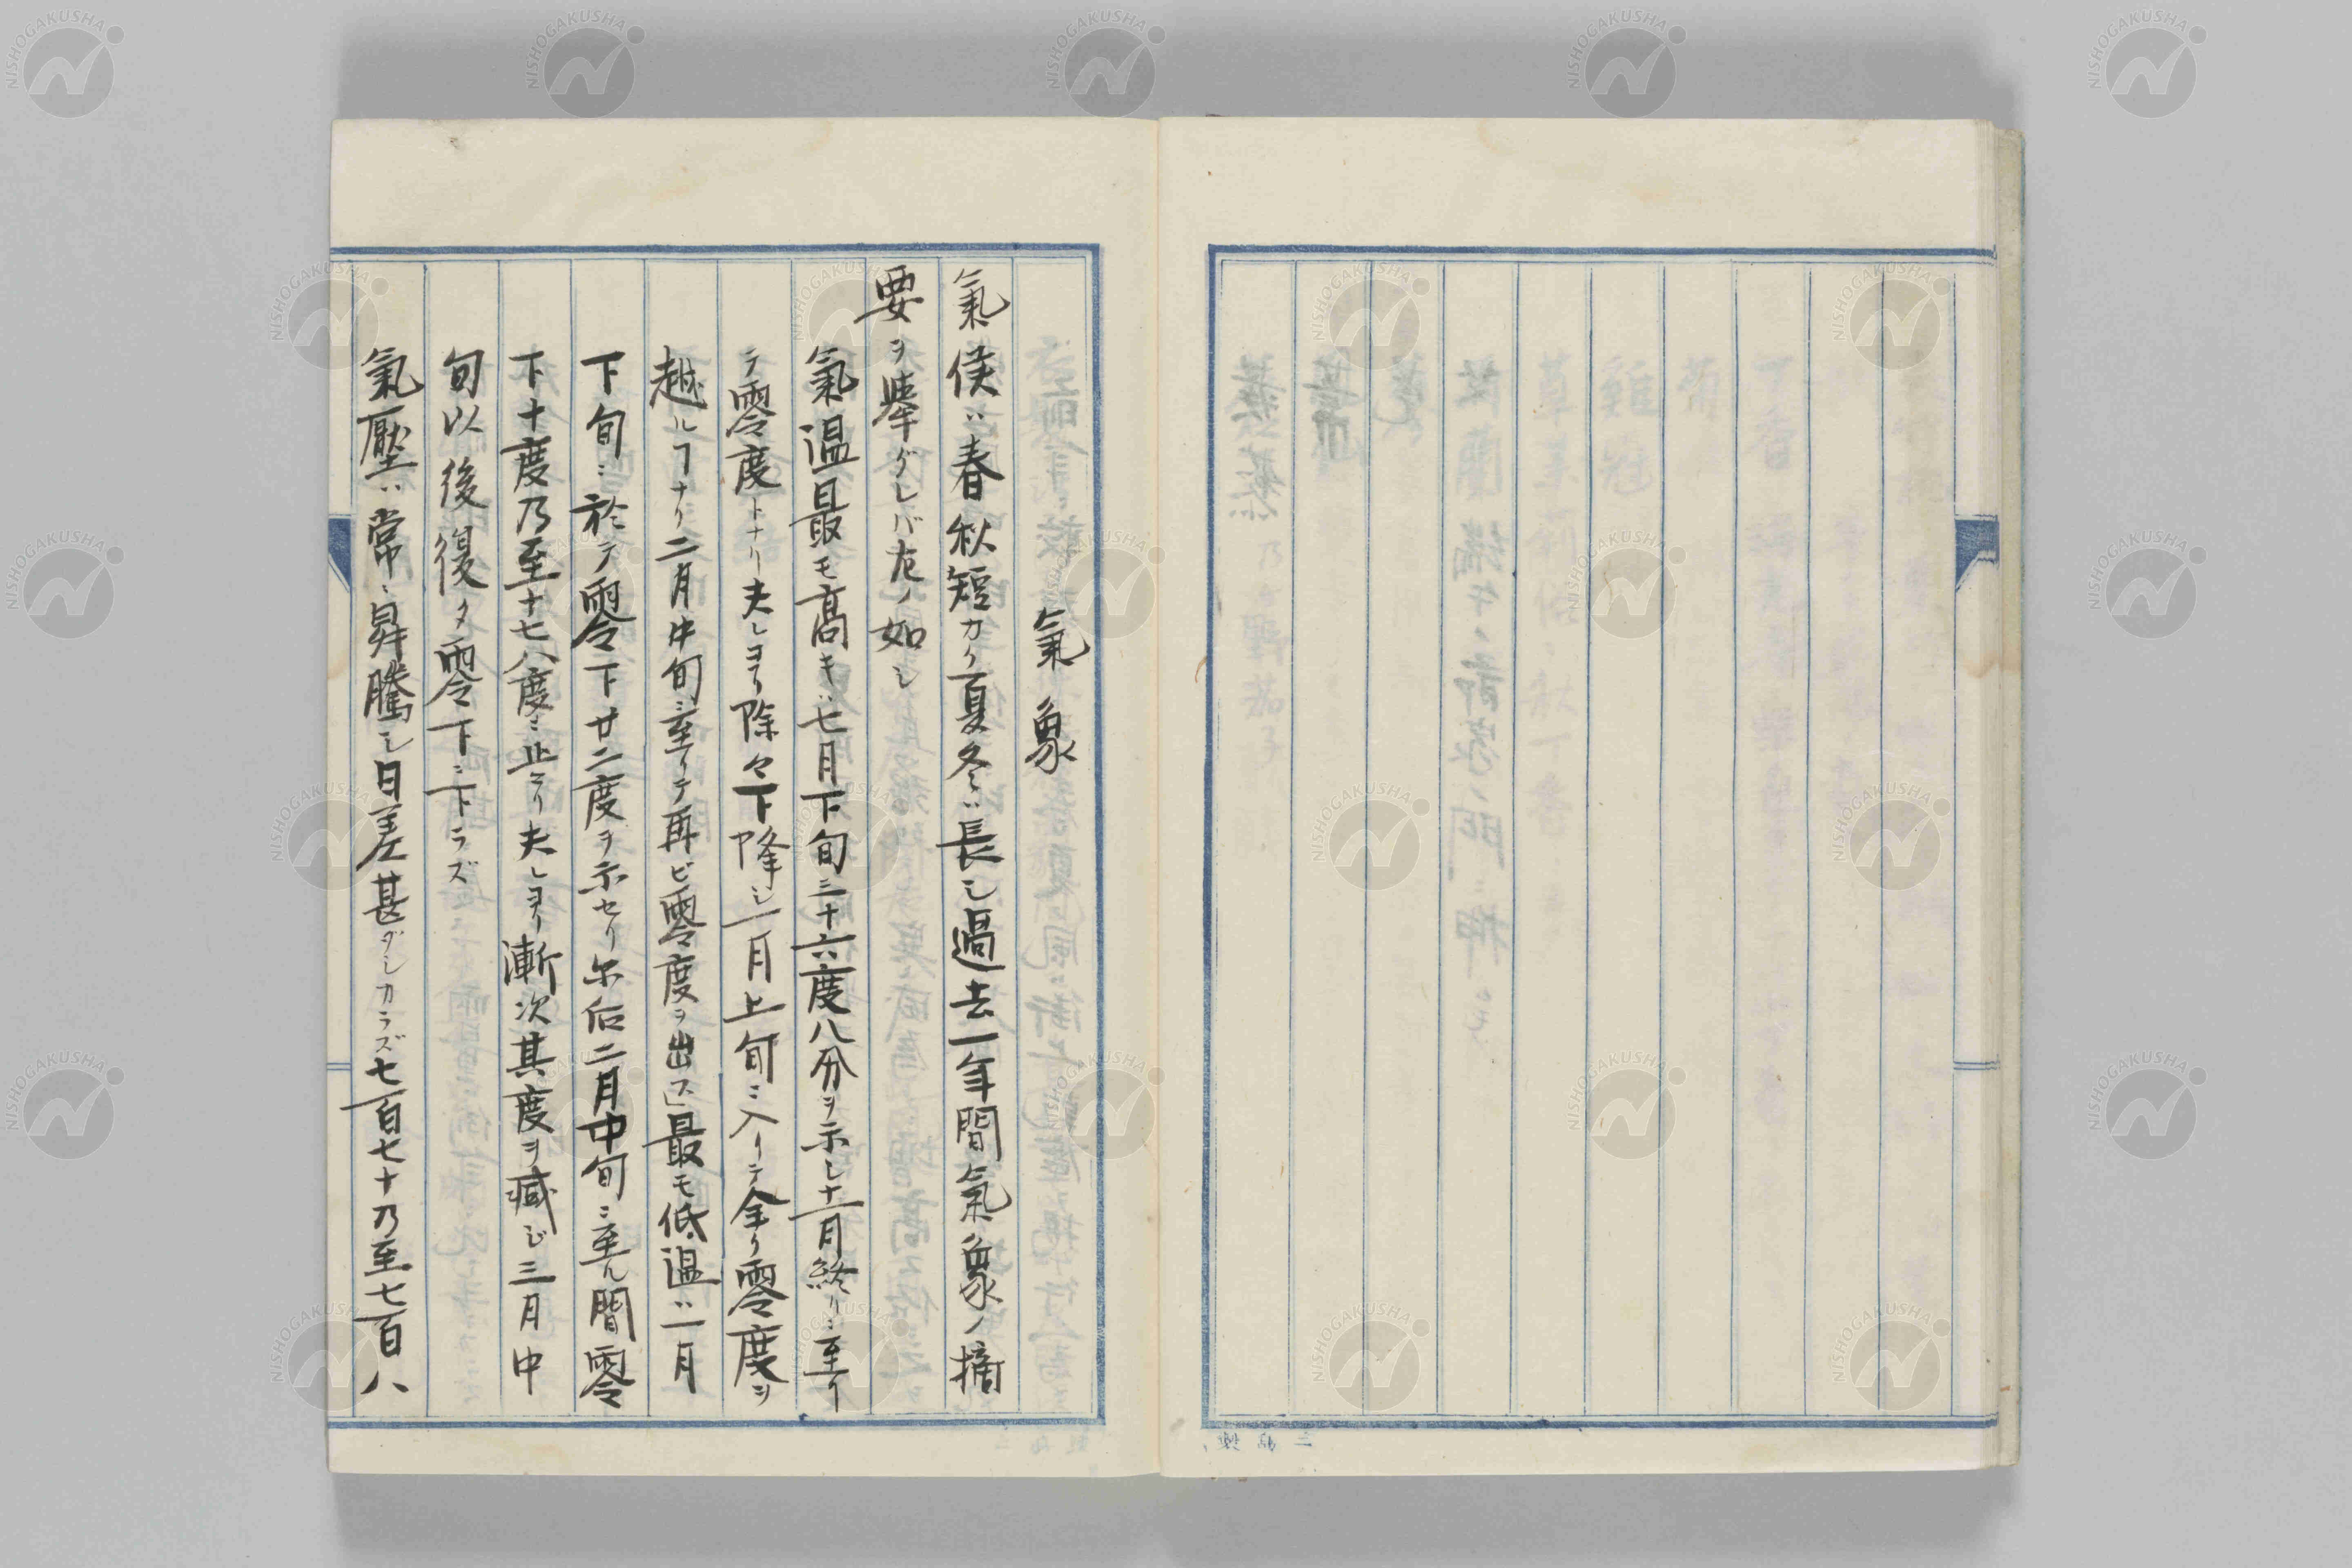 氣象
氣侯ハ春秋短カク夏冬ハ長シ過去一年間氣象ノ摘
要ヲ擧グレバ左ノ如シ
氣温最モ高キハ七月下旬三十六度八分ヲ示シ十一月終リニ至リ
テ零度トナリ夫レヨリ除々下降シ一月上旬ニ入リテ全ク零度ヲ
越ルヿナク二月中旬ニ至リテ再ビ零度ヲ出ス」最モ低温ハ一月
下旬ニ於テ零下廿二度ヲ示セリ尓后二月中旬ニ至ル間零
下十度乃至十七八度ニ止マリ夫レヨリ漸次其度ヲ减ジ三月中
旬以後復タ零下ニ下ラズ
氣壓ハ常ニ昇騰シ日差甚ダシカラズ七百七十乃至七百八
NISHOGAKUSHA